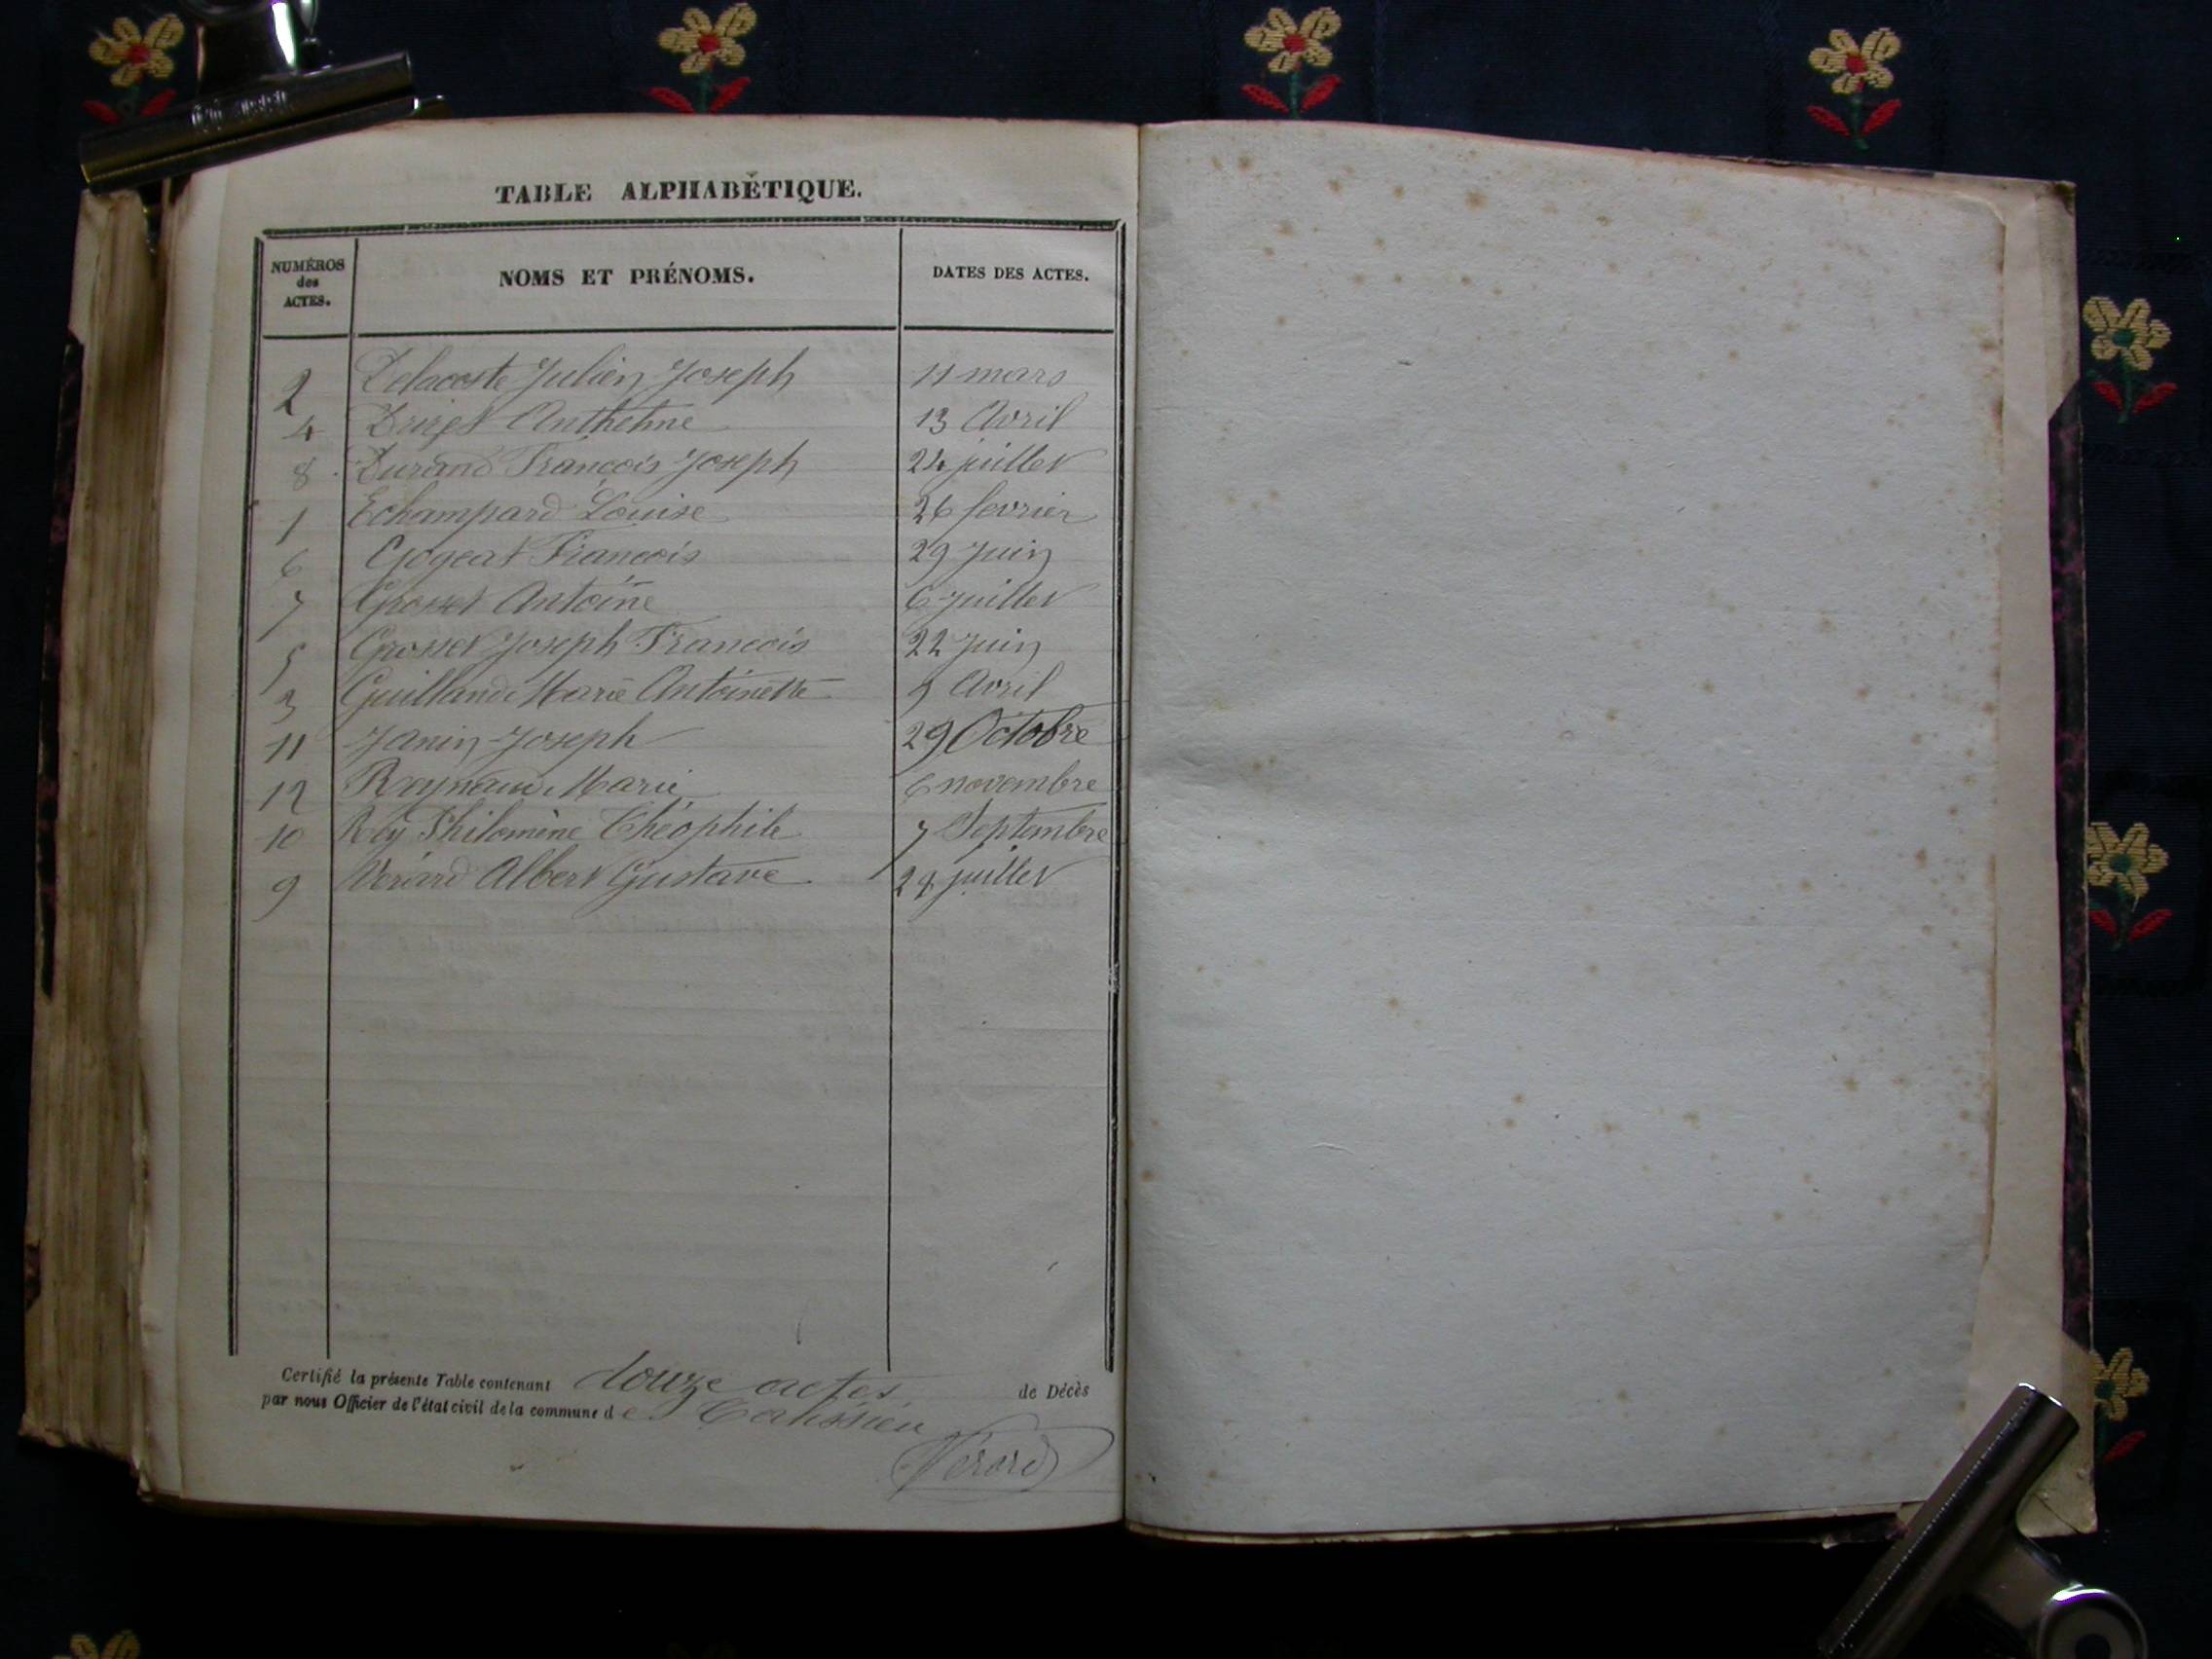 TABLE ALPHABÉTIQUE.
NUMÉROS des ACTES. NOMS ET PRÉNOMS. DATES DES ACTES.
2 Delacoste Julien Joseph 11 mars
4 Druget Anthelme 13 Avril
8 Durand François Joseph 24 juillet
1 Echampard Louise 26 fevrier
6 Gogeat Francois 29 Juin
7 Grosset Antoine 6 Juillet
5 Grosset Joseph Francois 22 Juin
3 Guilland Marie Antoinette Avril
11 Janin Joseph 29 Octobre
12 Reynaud Marie 6 novembre
10 Rey Philomène Théophile 7 Septembre
9 Verard Albert Gustave juillet
Certifié la présente Table contenant douze actes de Décès
par nous Officier de l'état civil de la commune de Talissieu
Verard